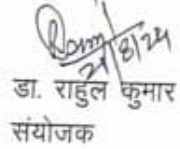 21/8/24
डा. राहुल कुमार
संयोजक